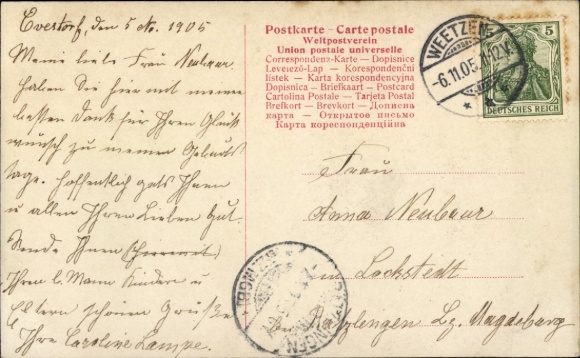 Everstorf, den 5 No. 1905
Meine liebe Frau Neubaur
haben Sie hier mit meinen
besten Dank für Ihren Glück
wunsch zu meinen Geburts
tage. Hoffentlich gets Ihnen
u allen Ihren Lieben Gut.
Sende Ihnen (hiermit)
Ihren l. Mann Kinder u
Eltern schönen Grüße
Ihre Caroline Lampe.
Postkarte – Carte postale
Weltpostverein
Union postale universelle
Correspondenz-Karte — Dopisnice
Levelező-Lap — Korespondenční
lístek — Karta korespondencyjna
Dopisnica — Briefkaart — Postcard
Cartolina Postale — Tarjeta Postal
Brefkort — Brevkort — Дописна
карта — Открытое письмо
Карта кореспонденційна
WEETZEN
-6.11.05. 11-12V.
5 5
DEUTSCHES REICH
Frau
Anna Neubaur
in Lockstedt
Bz. Magdeburg